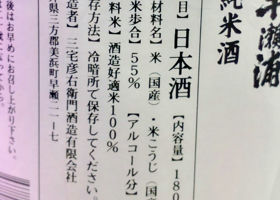 瀬浦
純米酒
目】日本酒 【内容量】180
材料名】米（国産）・米こうじ（国産
米歩合】55% 【アルコール分】
料米】酒造好適米100%
存方法】冷暗所で保存してください。
造者】三宅彦右衛門酒造有限会社
県三方郡美浜町早瀬二一ー七
後はお早めにお召し上がり下さい。